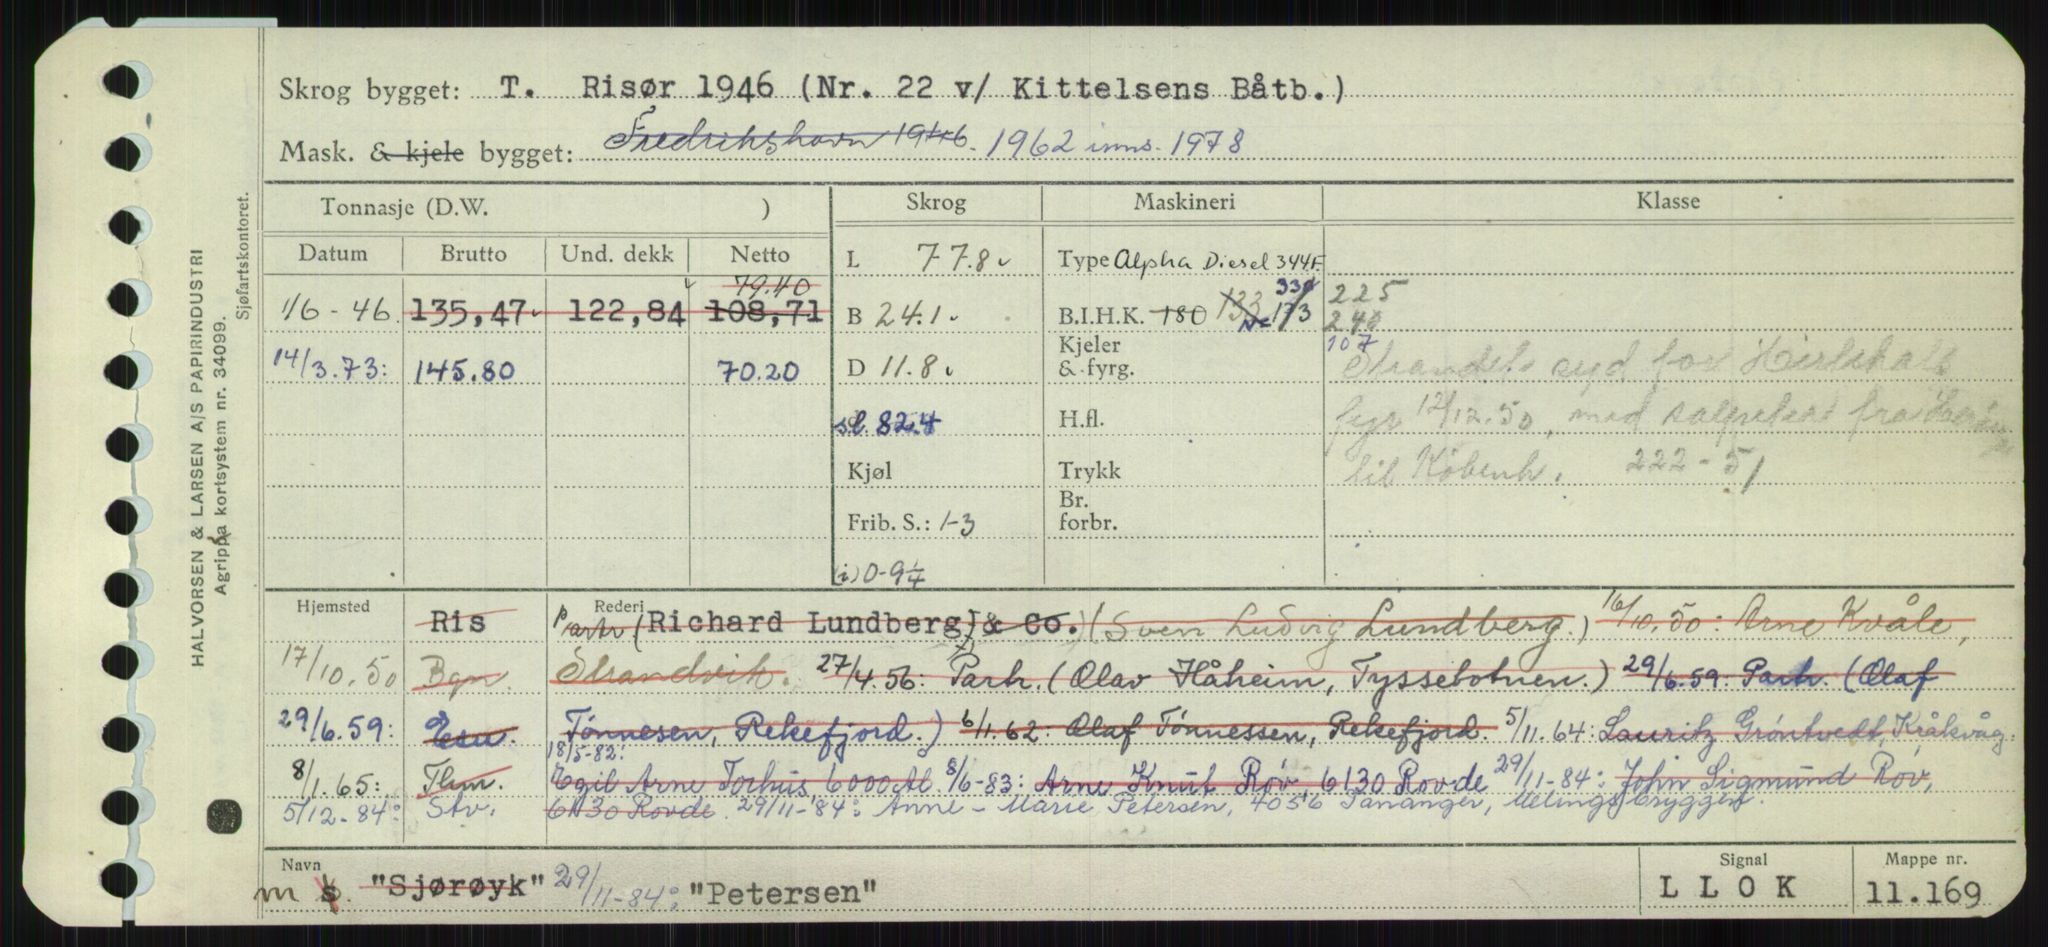 Skrog bygget: T. Risør 1946 (Nr. 22 v/ Kittelsens Båtb.)
Mask. & kjele bygget: Fredrikshavn 1946. 1962 inns. 1978
Tonnasje (D.W. ) Skrog Maskineri Klasse
Datum Brutto Und. dekk Netto
L 77.8 Type Alpha Diesel 344F
79.40
1/6-46 135,47 122,84 108,71
B 24.1 B.I.H.K. 180 133 173 330
225
240
107
14/3.73: 145.80 70.20
D 11.8 Kjeler & fyrg.
Strandet syd for Hirtshals
sl. 82.4 H.fl.
fyr 12/12.50, med salpeter fra
Kjøl Trykk
til Københ. 222-51
Frib. S.: 1-3 Br. forbr.
(i) 0-9¼
Hjemsted Rederi
Ris Partr (Richard Lundberg) & Co. (Sven Ludvig Lundberg.) 16/10.50: Arne Kvåle,
17/10.50 Bgn. Strandvik. 27/4.56: Partr. (Olav Håheim, Tyssebotnen.) 29/6.59: Partr. (Olaf
29/6.59: Esu. Tønnesen, Rekefjord.) 6/1.62: Olaf Tønnessen, Rekefjord. 5/11.64: Lauritz Grøntvedt, Kråkvåg.
18/5-82:
8/1.65: Thm. Egil Arne Torhus, 6000 Ål. 8/6-83: Arne Knut Røv, 6130 Rovde 29/11-84: John Sigmund Røv,
5/12-84: Stv. 6130 Rovde. 29/11-84: Anne-Marie Petersen, 4056 Tananger, Melingsbryggen.
Navn Signal Mappe nr.
m s "Sjørøyk" 29/11-84: "Petersen" LLOK 11.169
HALVORSEN & LARSEN A/S PAPIRINDUSTRI
Agrippa kortsystem nr. 34099.
Sjøfartskontoret.